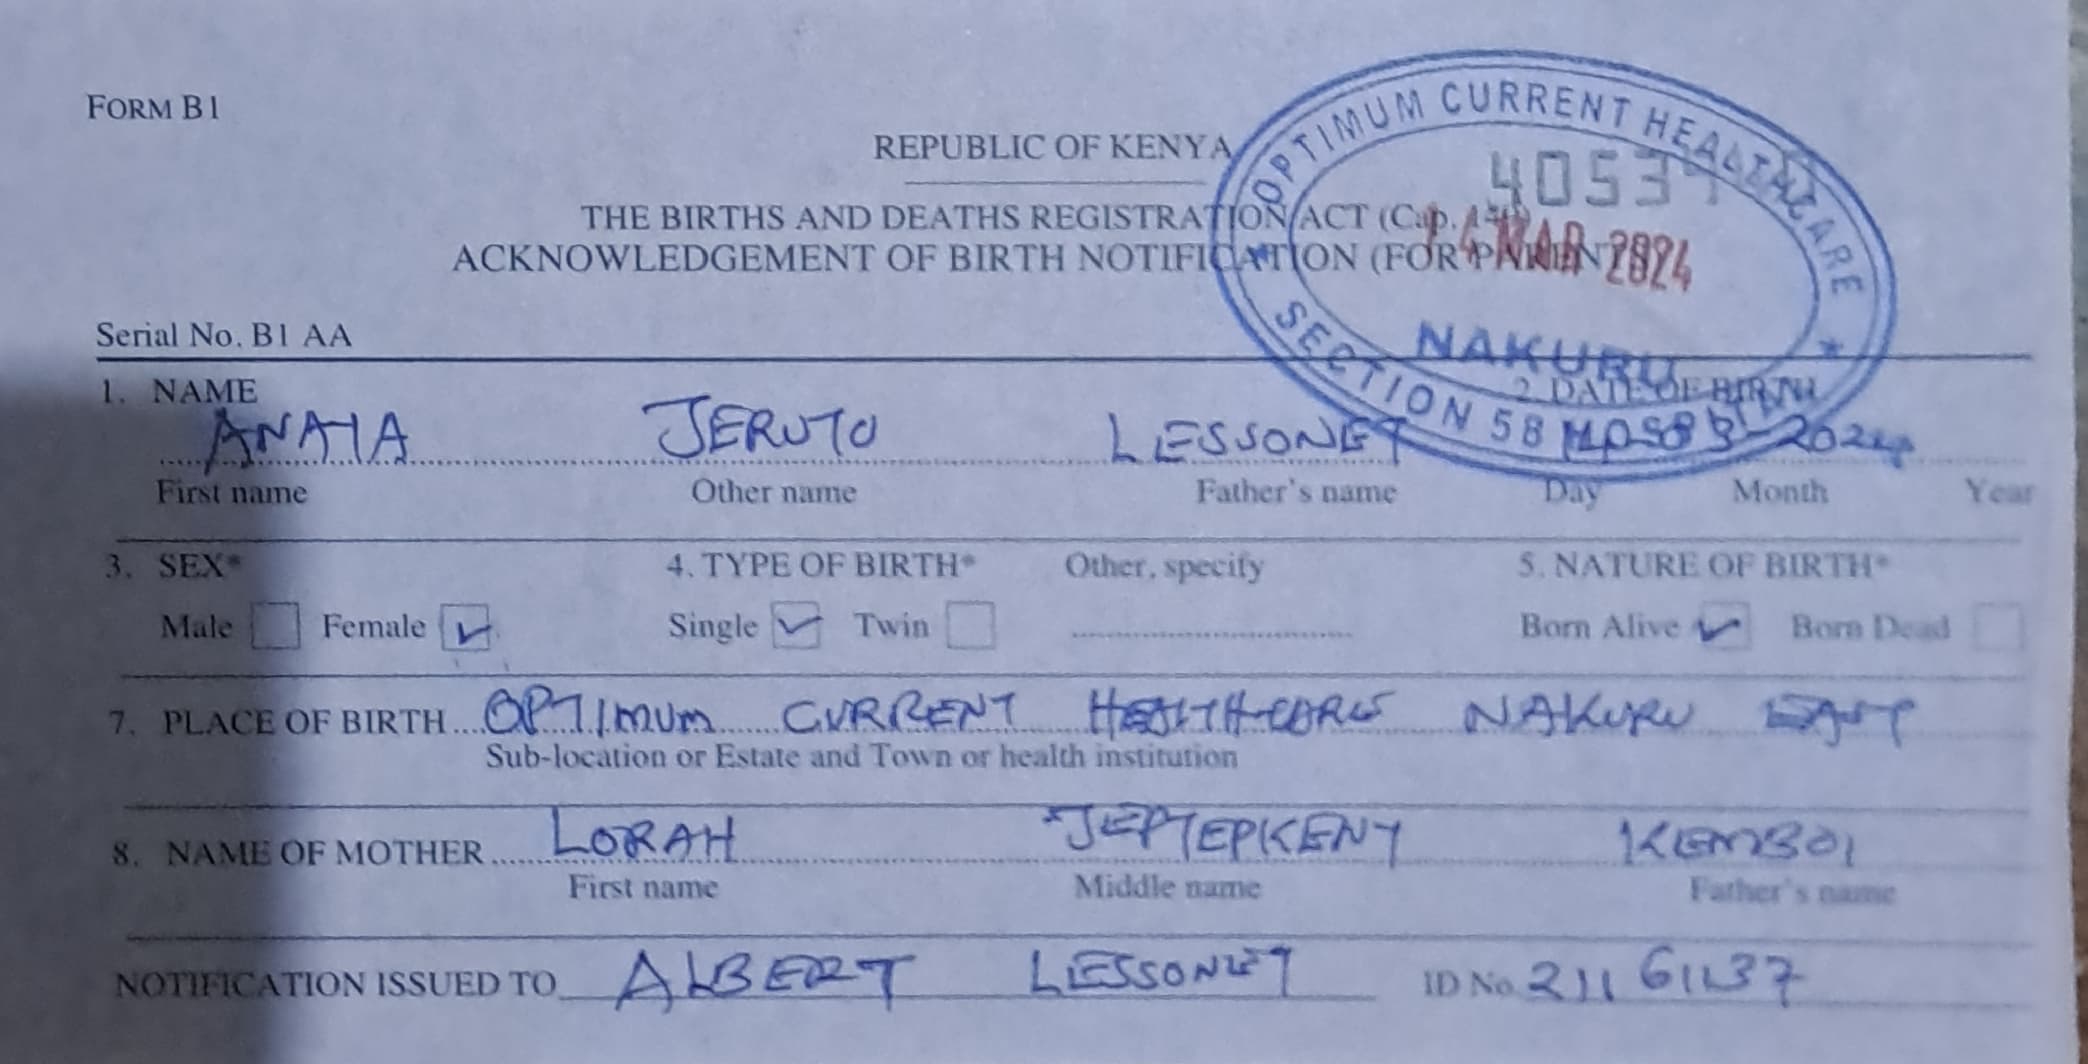 FORM B1
REPUBLIC OF KENYA
THE BIRTHS AND DEATHS REGISTRATION ACT (Cap.
ACKNOWLEDGEMENT OF BIRTH NOTIFICATION (FOR
OPTIMUM CURRENT HEALTHCARE
4053
MAR 2024
NAKURU
SECTION 58
Serial No. B1 AA
1. NAME 2. DATE OF BIRTH
ANAIA JERUTO LESSONET 2024
First name Other name Father's name Day Month Year
3. SEX* 4. TYPE OF BIRTH* Other, specify 5. NATURE OF BIRTH*
Male Female Single Twin Born Alive Born Dead
7. PLACE OF BIRTH OPTIMUM CURRENT HEALTHCARE NAKURU EAST
Sub-location or Estate and Town or health institution
8. NAME OF MOTHER LORAH JEPTEPKENY KEMBOI
First name Middle name Father's name
NOTIFICATION ISSUED TO ALBERT LESSONET ID No.